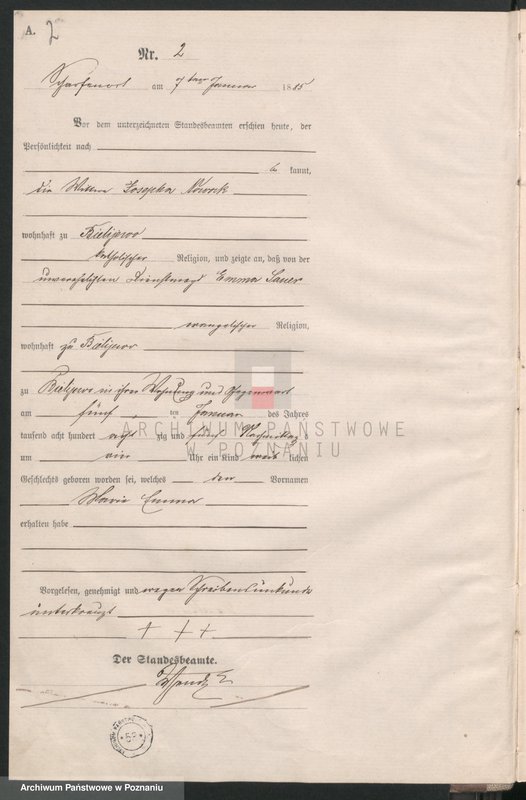 A. 2
Nr. 2
Scharfenort am 7ten Januar 1885
Vor dem unterzeichneten Standesbeamten erschien heute, der
Persönlichkeit nach
be kannt,
die Wittwe Josepha Nowak
wohnhaft zu
katholischer Religion, und zeigte an, daß von der
unverehelichten Dienstmagd Emma Sauer
evangelischer Religion,
wohnhaft zu
zu in ihrer Wohnung und Gegenwart
am fünf ten Januar des Jahres
tausend acht hundert acht zig und fünf Nachmittag s
um ein Uhr ein Kind weib lichen
Geschlechts geboren worden sei, welches den Vornamen
Marie Emma
erhalten habe
Vorgelesen, genehmigt und wegen Schreibensunkunde
unterkreuzt
+ + +
Der Standesbeamte.
ARCHIWUM PAŃSTWOWE
W POZNANIU
Archiwum Państwowe w Poznaniu